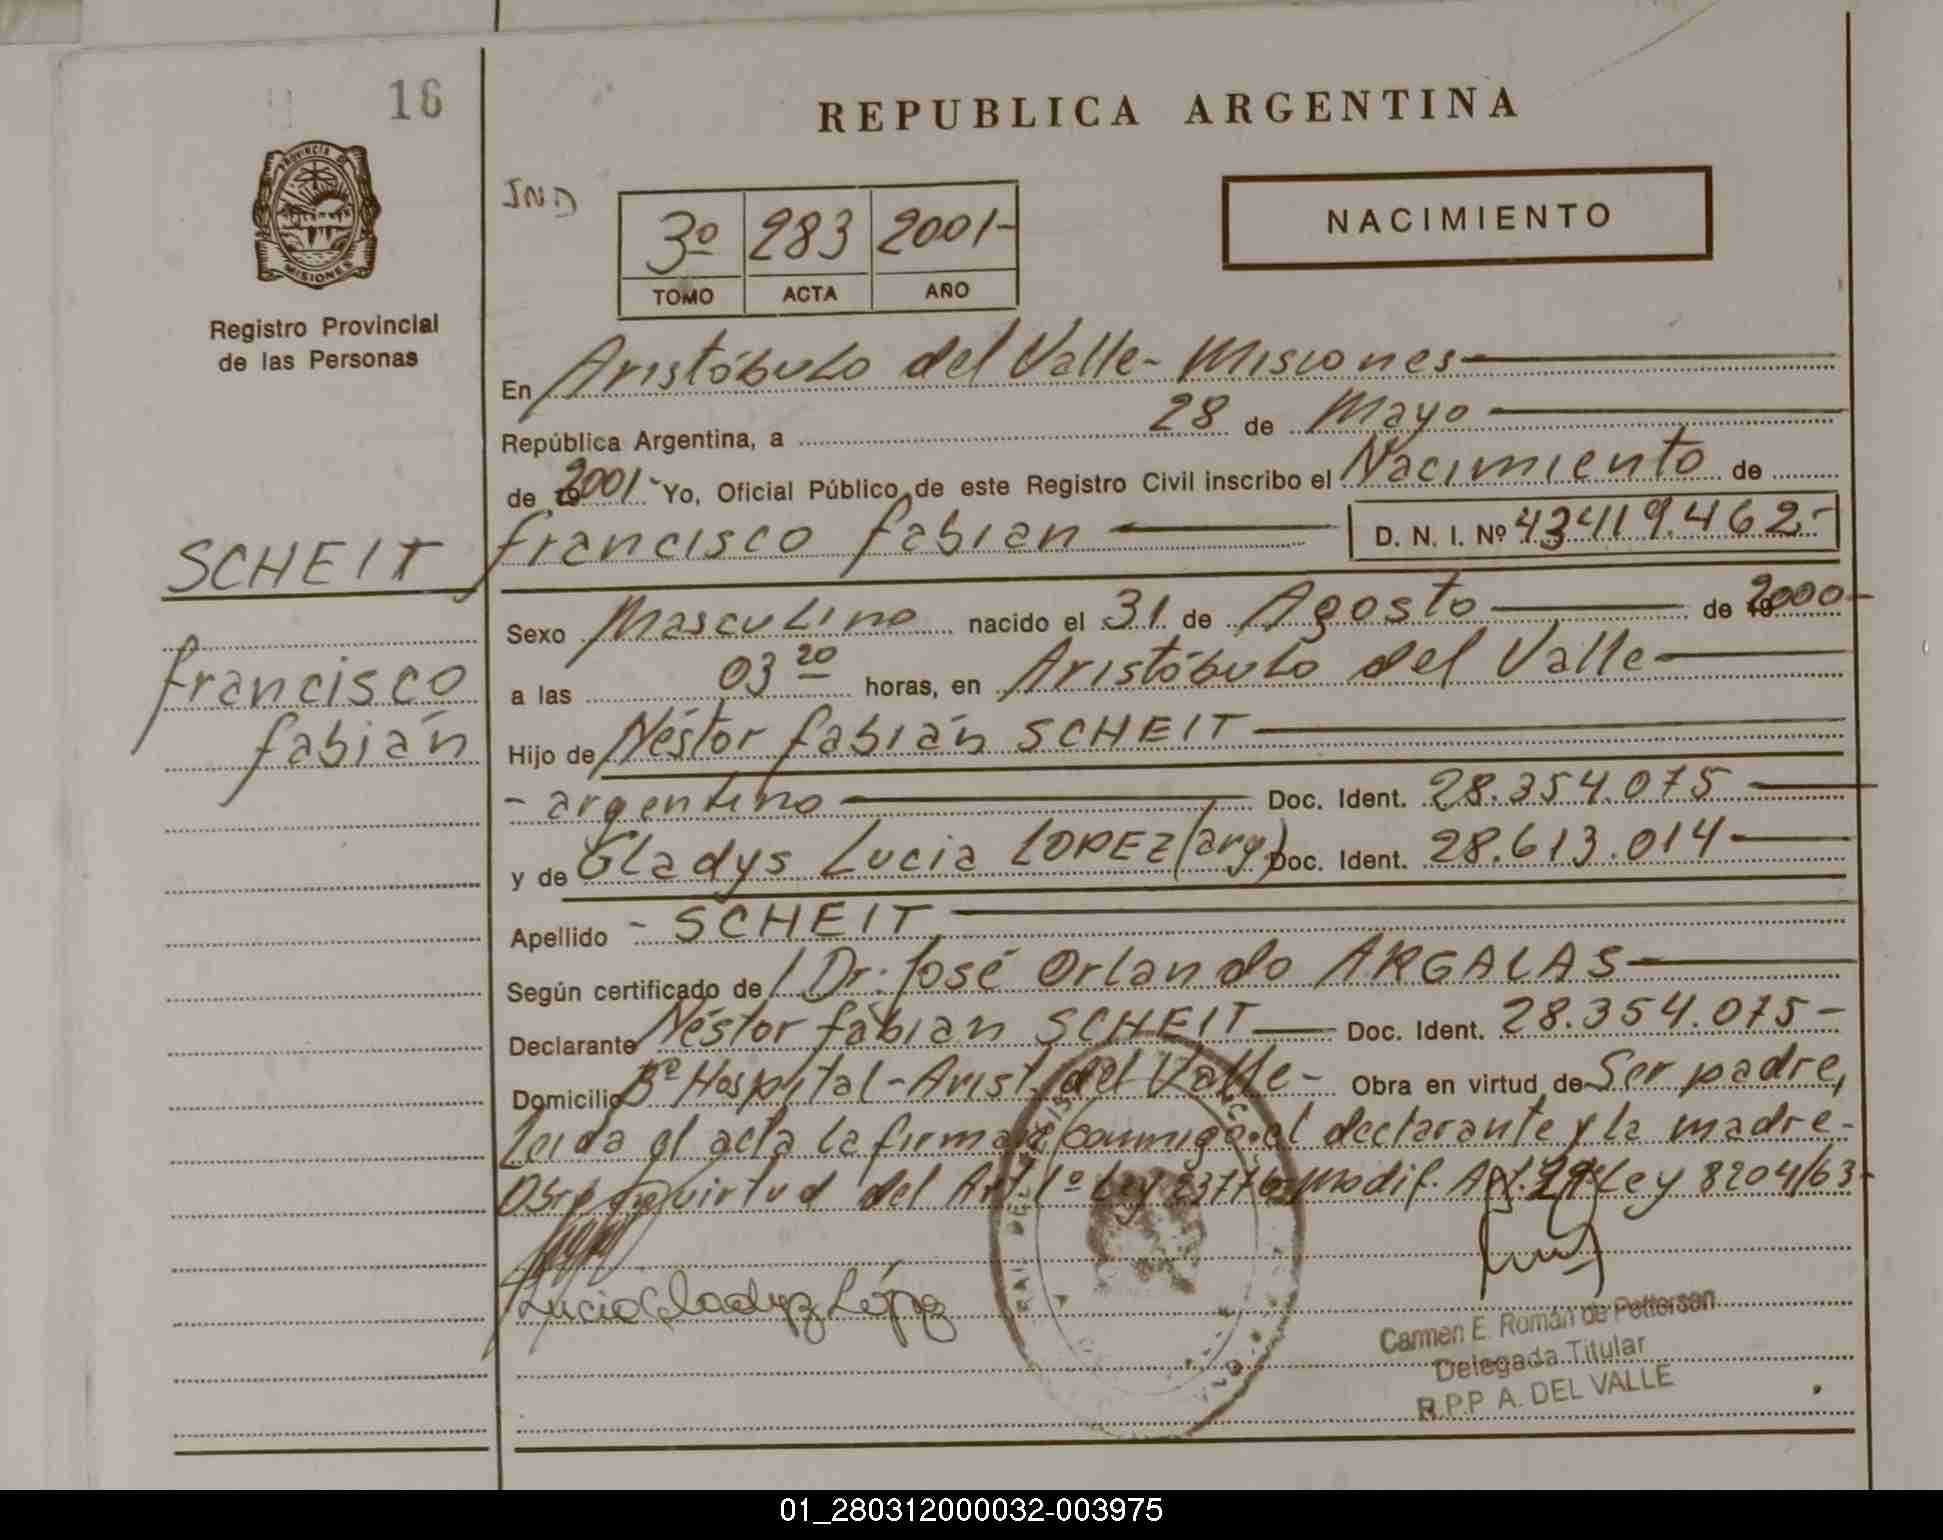 16
REPUBLICA ARGENTINA
PROVINCIA DE
MISIONES
Registro Provincial
de las Personas
IND
3º 283 2001-
TOMO ACTA AÑO
NACIMIENTO
En Aristóbulo del Valle- Misiones
República Argentina, a 28 de Mayo
de 2001- Yo, Oficial Público de este Registro Civil inscribo el Nacimiento de
francisco fabian D. N. I. Nº 43419.462.-
SCHEIT
francisco
fabián
Sexo Masculino nacido el 31 de Agosto de 2000-
a las 03 20 horas, en Aristóbulo del Valle
Hijo de Néstor fabián SCHEIT
- argentino Doc. Ident. 28.354.075
y de Gladys Lucia LOPEZ (arg) Doc. Ident. 28.613.014
Apellido - SCHEIT
Según certificado de Dr. José Orlando ARGALAS
Declarante Néstor fabián SCHEIT Doc. Ident. 28.354.075-
Domicilio Bº Hospital - Arist. del Valle - Obra en virtud de Ser padre,
Leida el acta la firman conmigo el declarante y la madre-
Obra en virtud del Art. 1º Ley 23776 Modif. Art. Ley 8204/63-
Lucia Gladyz López
Carmen E. Román de Petterson
Delegada Titular
R.P.P A. DEL VALLE
01_280312000032-003975